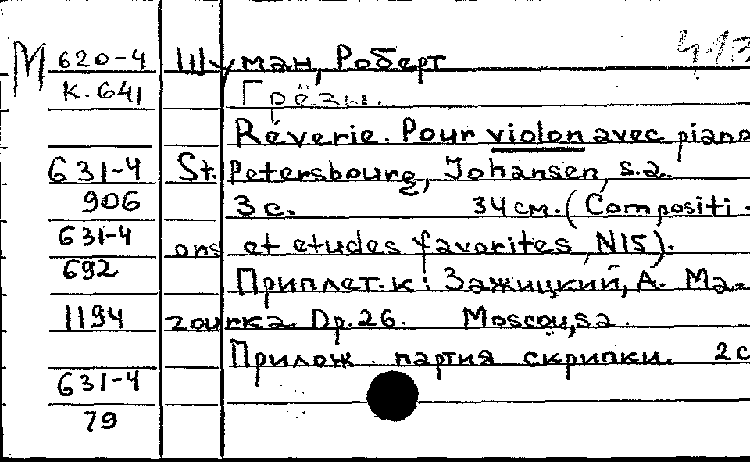 М 620-4 Шуман, Роберт
К.641 Грёзы.
Rêverie. Pour violon avec piano
631-4 St. Petersbourg, Johansen, s.a.
906 3 с. 34 см. (Compositi-
631-4 ons et etudes favorites, N15).
692 Приплет. к: Зажицкий, А. Ma-
1194 zourka. Op. 26. Moscou, s.a.
Прилож. партия скрипки. 2 с
631-4
79